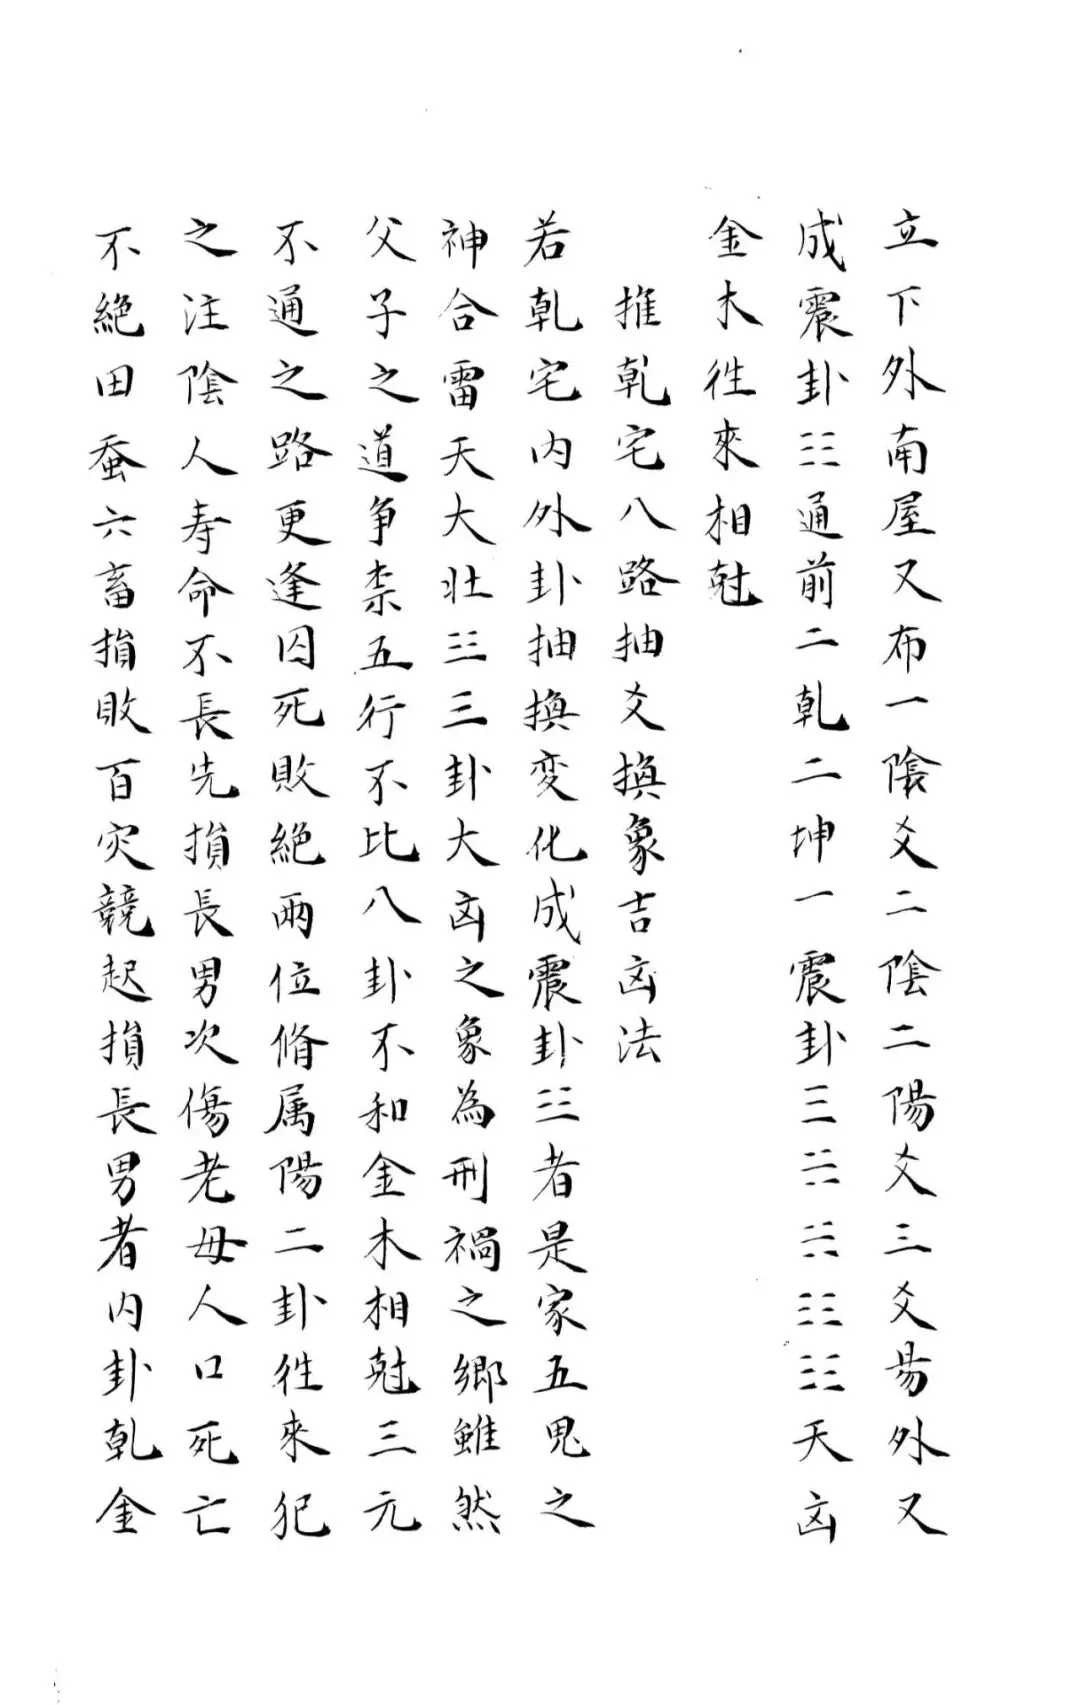 立下外南屋又布一陰爻二陰二陽爻三爻昜外又
成震卦☳通前二乾二坤一震卦☰☷☷☳☳天凶
金木徃來相尅
推乹宅八路抽爻換象吉凶法
若乹宅内外卦抽換変化成震卦☳者是家五鬼之
神合雷天大壯☳☰卦大凶之象為刑禍之鄉雖然
父子之道争柰五行不比八卦不和金木相尅三元
不通之路更逢囚死敗絕兩位脩属陽二卦徃來犯
之注陰人寿命不長先損長男次傷老母人口死亡
不絕田蚕六畜損敗百灾競起損長男者内卦乹金